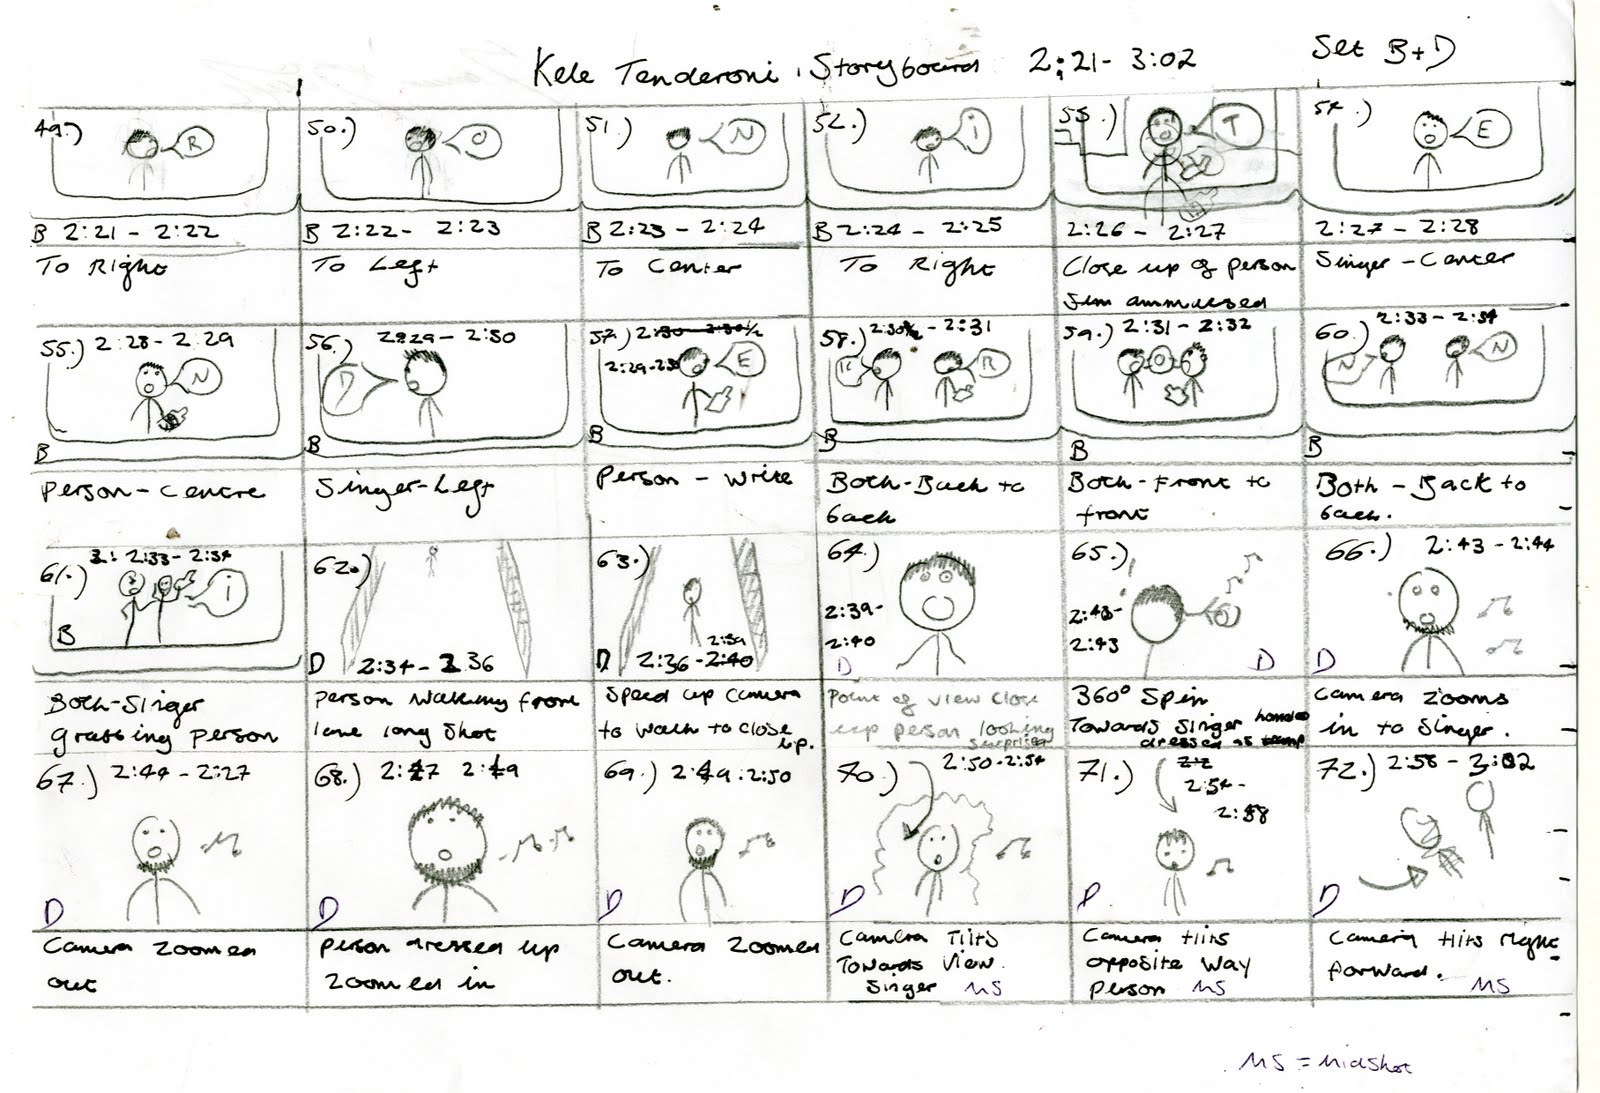 Kele Tenderoni Storyboard 2:21- 3:02 Set B+D
49.) R
50.) O
51.) N
52.) i
53.) T
54.) E
B 2:21 - 2:22
B 2:22- 2:23
B 2:23 - 2:24
B 2:24 - 2:25
2:26 - 2:27
2:27 - 2:28
To Right
To Left
To Center
To Right
Close up of person
Singer - Center
55.) 2:28 - 2:29
N
B
56.) 2:29 - 2:30
D
B
57.)
2:29-2:30
E
B
58.) 2:30½ - 2:31
R
B
59.) 2:31 - 2:32
O
B
60.) 2:33 - 2:34
N N
B
Person - Centre
Singer-Left
Person - Write
Both-Back to
back
Both-Front to
front
Both - Back to
back.
61.) 2:33- 2:34
i
B
62.)
D 2:34 - 2.36
63.)
2:39
D 2:36 - 2:40
64.)
2:39-
2:40
D
65.)
2:43
D
66.) 2:43 - 2:44
D
Both-Singer
grabbing person
person walking front
lane long shot
Speed up camera
to walk to close
up.
Point of view close
up person looking
surprised
360° Spin
Towards Singer
dressed as tramp
Camera zooms
in to Singer.
67.) 2:44 - 2:27
D
68.) 2:47 2:49
D
69.) 2:49 : 2:50
D
70.) 2:50-2:54
D
71.)
2:54-
2:58
D
72.) 2:58 - 3:02
D
Camera zoomed
out
person dressed up
zoomed in
Camera zoomed
out.
Camera Tilts
Towards View.
Singer MS
Camera tilts
opposite way
person MS
Camera tilts right
forward.
MS
MS = Midshot